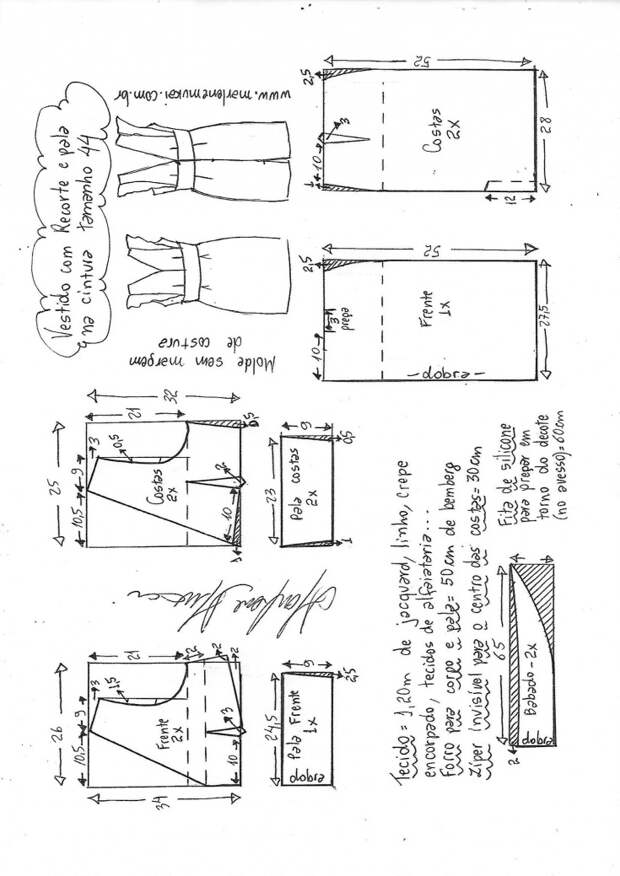 Vestido com Recorte e pala
na cintura tamanho 44
www.marlenemukai.com.br
Molde sem margem
de costura
26
10,5
9
3
1,5
21
34
2
2
2
3
10
Frente
2x
25
10,5
9
3
0,5
21
32
0,5
2
10
1
Costas
2x
24,5
Pala Frente
1x
dobra
6
2,5
23
Pala costas
2x
6
0,5
1
10
3
prega
2,5
52
Frente
1x
dobra
27,5
1
10
3
2,5
52
Costas
2x
12
28
Tecido = 1,20m de jacquard, linho, crepe
encorpado, tecidos de alfaiataria...
Forro para corpo e pala = 50cm de bemberg
Zíper invisível para o centro das costas = 30cm
Fita de silicone
para prepar em
torno do decote
(no avesso) = 60cm
2
65
Babado - 2x
dobra